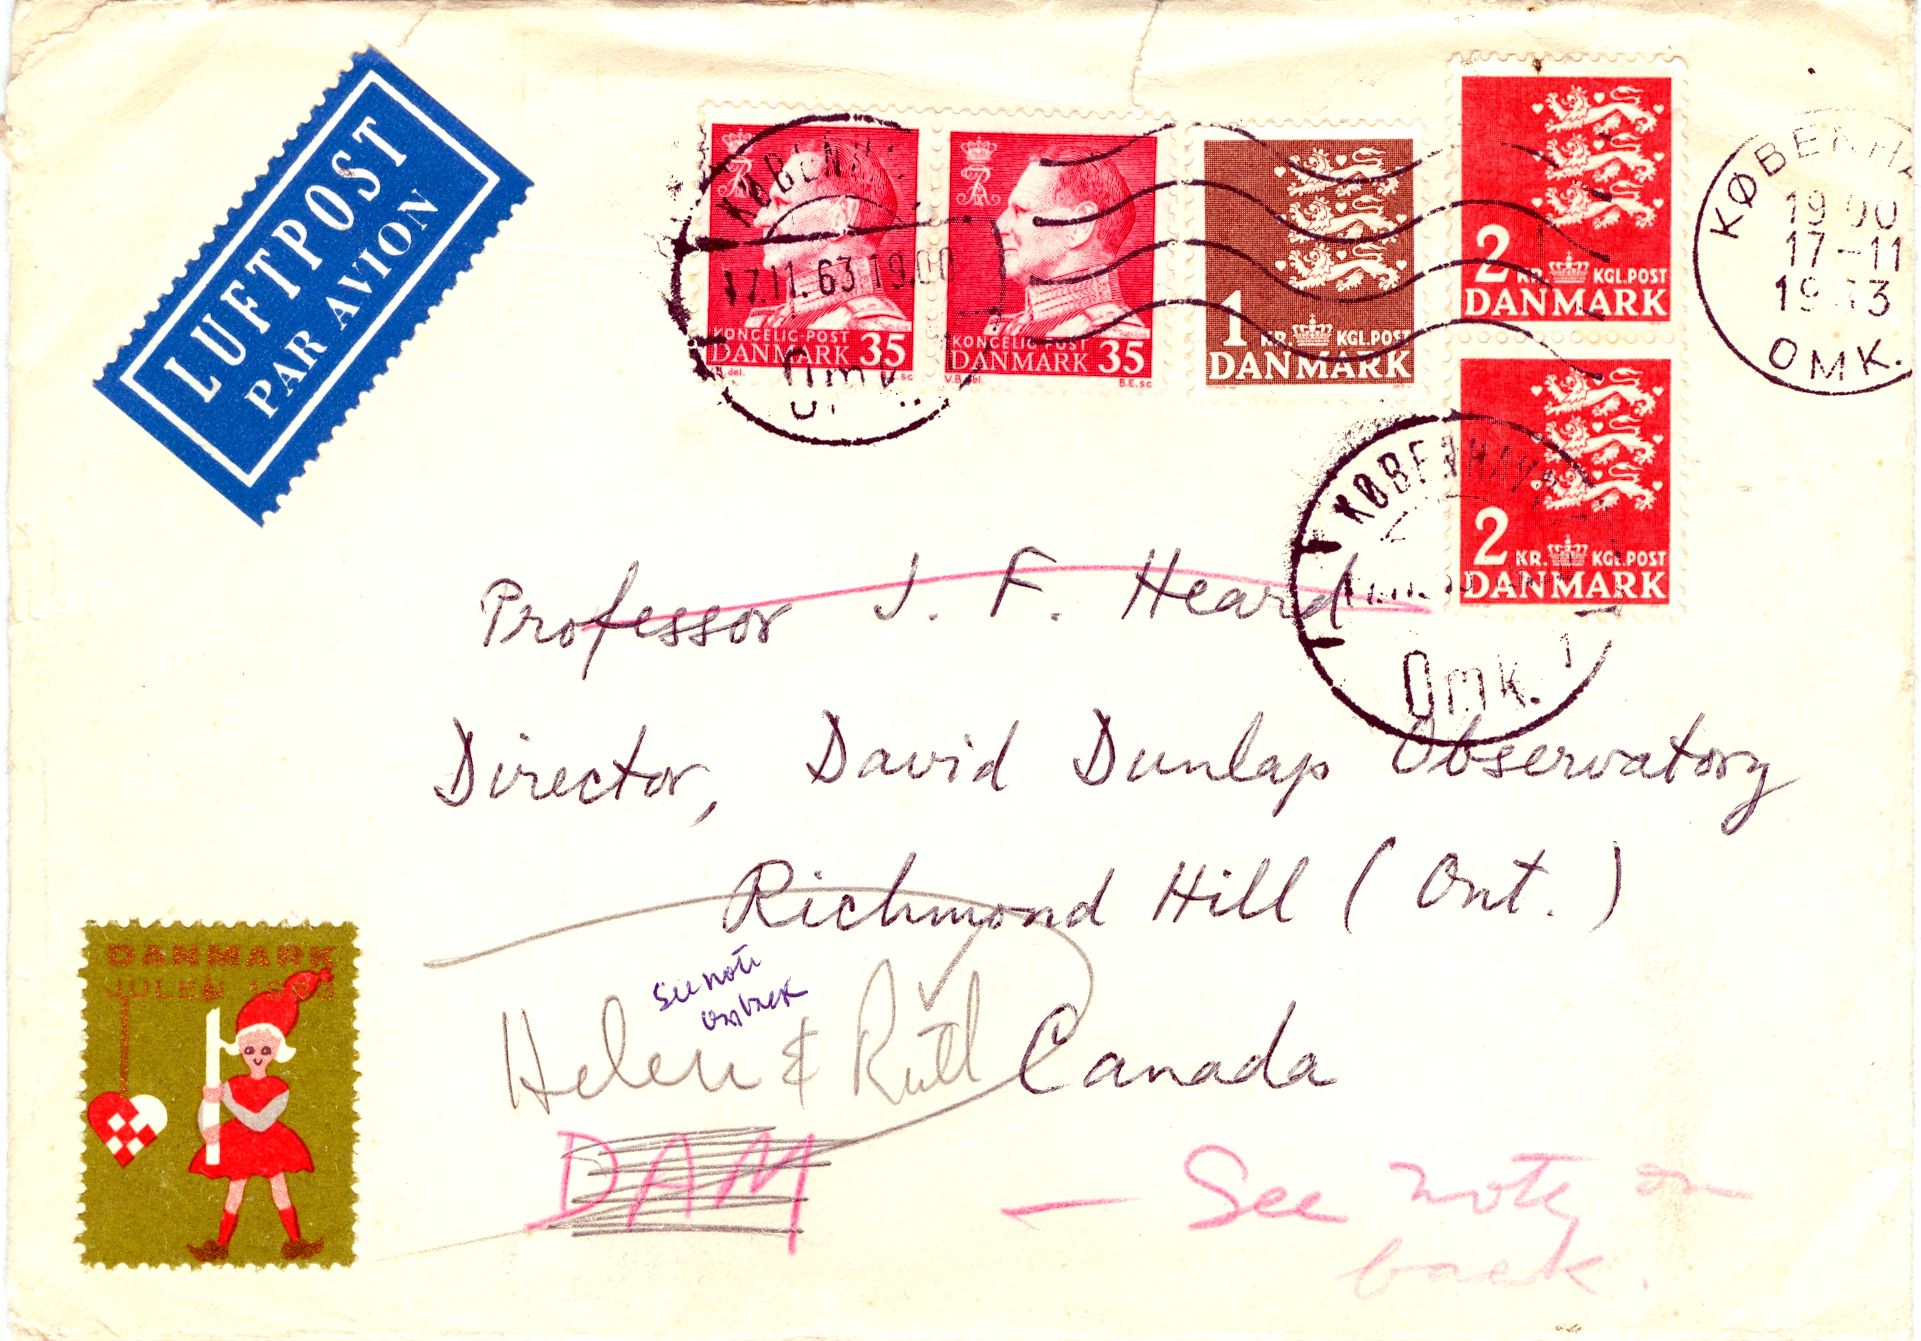 LUFTPOST
PAR AVION
KØBENH
17.11.63 19.00
Omk.
KONGELIG POST
DANMARK 35
KONGELIG POST
DANMARK 35
V.B. del.
B.E.sc
1 KR. KGL.POST
DANMARK
2 KR. KGL.POST
DANMARK
2 KR. KGL.POST
DANMARK
KØBENHA
19 00
17-11
19 3
OMK.
KØBENHAV
Omk.
Professor J. F. Heard
Director, David Dunlap Observatory
Richmond Hill (Ont.)
Canada
See note
on back
Helen & Ruth
DAM
— See note on
back.
DANMARK
JULEN